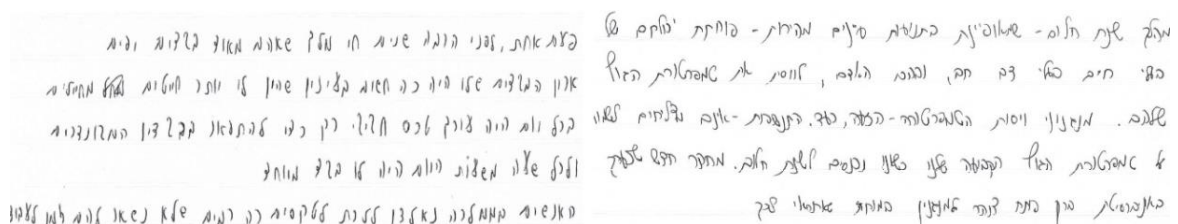 מהלך שנת חלום - שמאופיינת בתנועות עיניים מהירות - פוחתת יכולתם של
בעלי חיים בעלי דם חם, ובהם האדם, לווסת את טמפרטורת הגוף
שלהם. מנגנוני ויסות הטמפרטורה - הזעה, רעד, - אינם מצליחים לשמור
על טמפרטורת הגוף הקבועה שלנו כשאנו נכנסים לשנת חלום. מחקר חדש שנערך
באוניברסיטת ברן פתח צוהר למנגנון המוחי שאחראי לכך
פעם אחת, לפני הרבה שנים חי מלך שאהב מאוד בגדים יפים
ארון הבגדים שלו היה כה חשוב בעיניו שהיו לו יותר חייטים מחיילים
בכל יום היה עורך טקס חגיגי רק כדי להתגאות בבגדיו המהודרים
ולכל שעה משעות היום היה לו בגד מיוחד
האנשים בממלכה נאלצו ללכת לטקסים כה רבים שלא נשאר להם זמן לעבוד